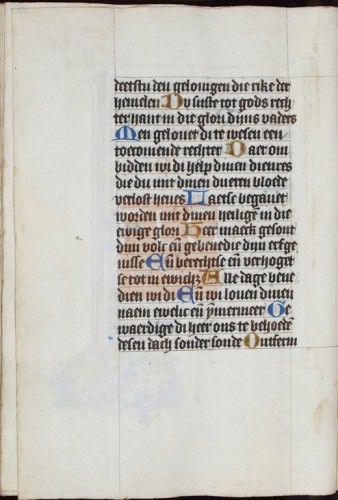 deetstu den gelouigen die rike der
hemelen Du sittste tot gods rech
ter hant in die glori dijns vaders
Men gelouet di te wesen een
toecomende rechter Daer om
bidden wi di help dinen dienres
die du mit dinen dueren bloede
verlost heues Laetse begauet
worden mit dinen heilige in die
ewige glori Heer maeck gesont
dijn volc en gebenedie dijn erfge
nisse En berechtse en verhoget
se tot in ewich Alle dage bene
dien wi di En wi louen dinen
naem ewelic en ymmermeer Ge
waerdige di heer ons te behoede
desen dach sonder sonde Ontferm